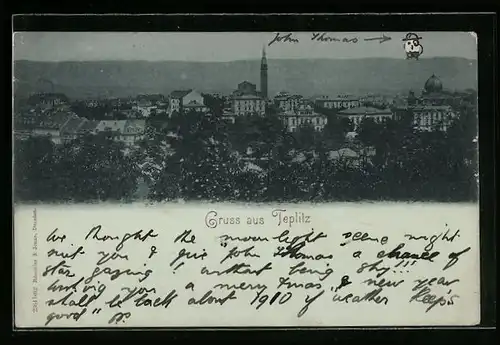 John Thomas →
Gruss aus Teplitz
We thought the "moonlight" scene might
suit you & give "John Thomas" a chance of
star gazing, without being shy!!!
wishing you a merry Xmas & new year
shall be back about 1910 if weather keeps
good"
Stilling, Römmler & Jonas, Dresden.